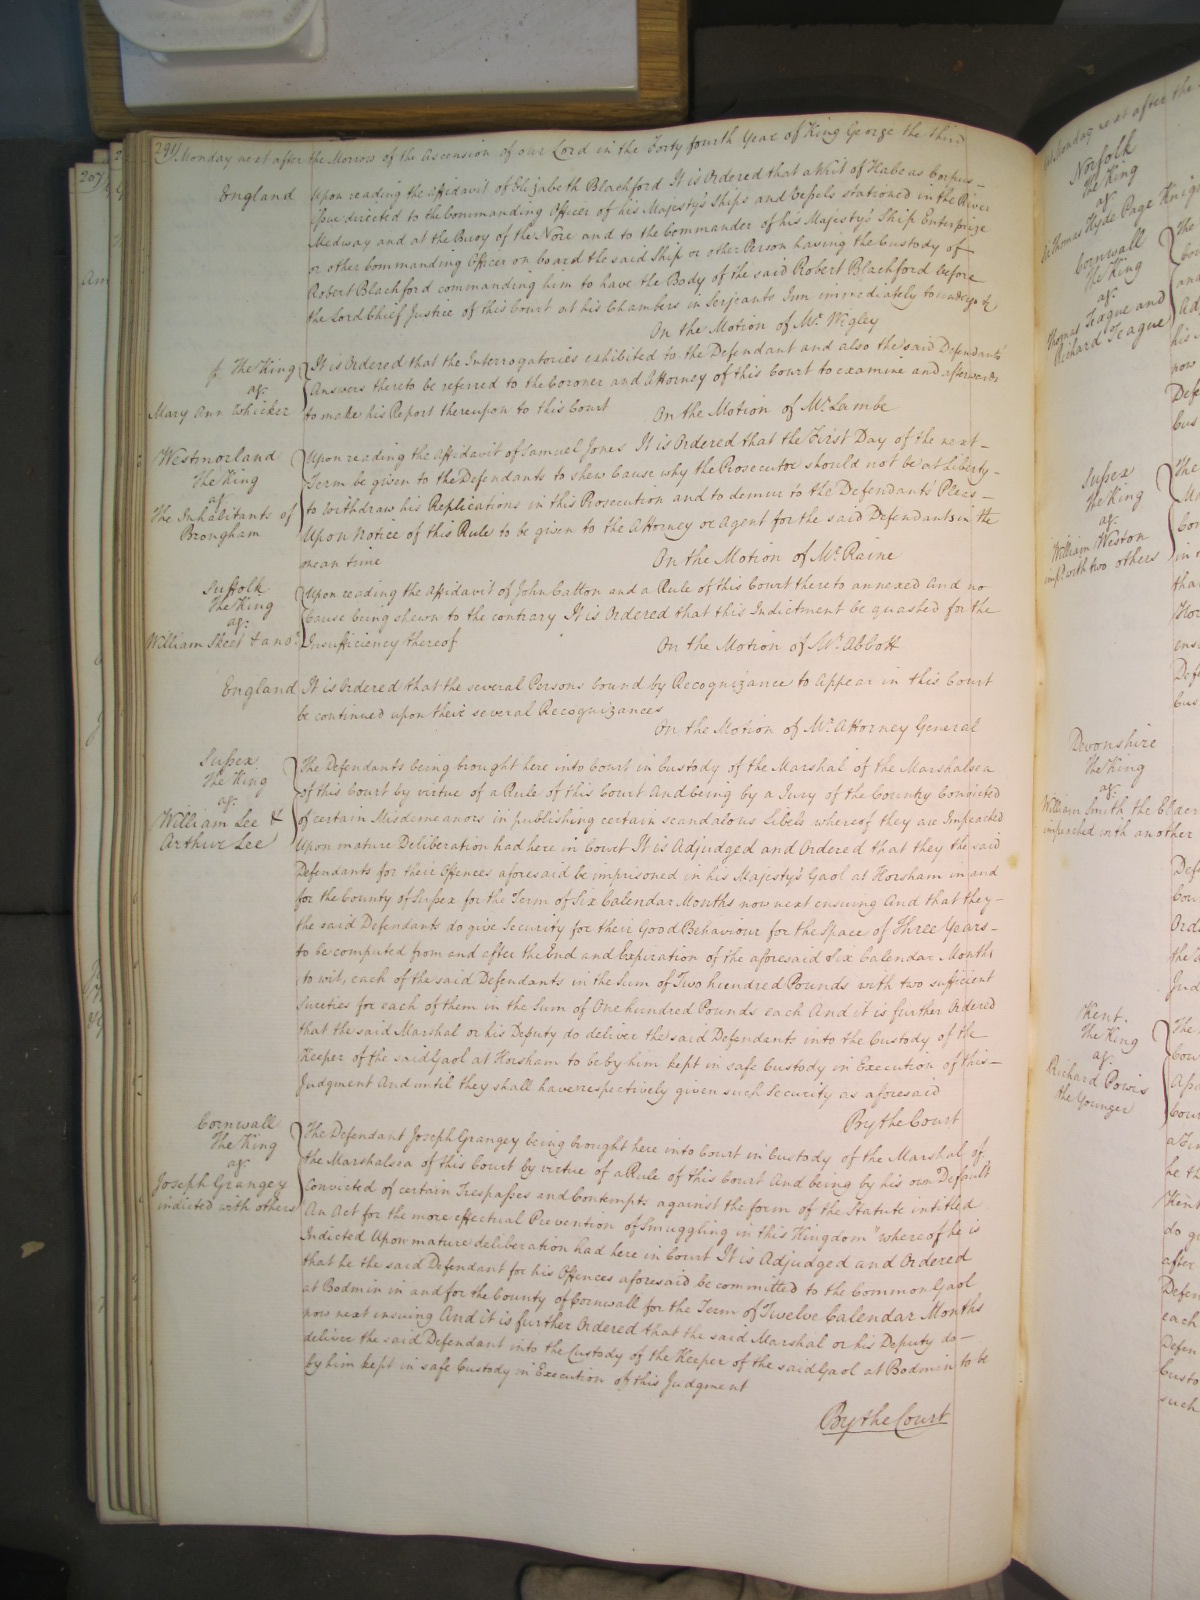 294 Monday next after the Morrow of the Ascension of our Lord in the Forty fourth Year of King George the third
England
Upon reading the Affidavit of Elizabeth Blachford It is Ordered that a Writ of Habeas Corpus
Issue directed to the Commanding Officer of his Majesty's Ships and Vessels stationed in the River
Medway and at the Buoy of the Nore and to the Commander of his Majesty's Ship Enterprize
or other Commanding Officer on board the said Ship or other Person having the Custody of
Robert Blachford commanding him to have the Body of the said Robert Blachford before
the Lord Chief Justice of this Court at his Chambers in Serjeants Inn immediately to undergo &c
On the Motion of Mr. Wigley
The King
agt.
Mary Ann Whicker
It is Ordered that the Interrogatories exhibited to the Defendant and also the said Defendants
Answers thereto be referred to the Coroner and Attorney of this Court to examine and afterwards
to make his Report thereupon to this Court
On the Motion of Mr. Lambe
Westmorland
The King
agt.
The Inhabitants of
Brougham
Upon reading the Affidavit of Samuel Jones It is Ordered that the First Day of the next
Term be given to the Defendants to shew Cause why the Prosecutor should not be at Liberty
to withdraw his Replications in this Prosecution and to demur to the Defendants Pleas
Upon Notice of this Rule to be given to the Attorney or Agent for the said Defendants in the
mean time
On the Motion of Mr. Raine
Suffolk
The King
agt.
William Skeet & anor.
Upon reading the Affidavit of John Catton and a Rule of this Court thereto annexed And no
Cause being shewn to the contrary It is Ordered that this Indictment be quashed for the
Insufficiency thereof
On the Motion of Mr. Abbott
England
It is Ordered that the several Persons bound by Recognizance to Appear in this Court
be continued upon their several Recognizances
On the Motion of Mr. Attorney General
Sussex
The King
agt.
William Lee &
Arthur Lee
The Defendants being brought here into Court in Custody of the Marshal of the Marshalsea
of this Court by virtue of a Rule of this Court And being by a Jury of the Country Convicted
of certain Misdemeanors in publishing certain scandalous Libels whereof they are Impeached
Upon mature Deliberation had here in Court It is Adjudged and Ordered that they the said
Defendants for their Offences aforesaid be imprisoned in his Majesty's Gaol at Horsham in and
for the County of Sussex for the Term of Six Calendar Months now next ensuing And that they
the said Defendants do give Security for their Good Behaviour for the space of Three Years
to be computed from and after the End and Expiration of the aforesaid Six Calendar Months
to wit, each of the said Defendants in the Sum of Two hundred Pounds with two sufficient
Sureties for each of them in the Sum of One hundred Pounds each And it is further Ordered
that the said Marshal or his Deputy do deliver the said Defendants into the Custody of the
Keeper of the said Gaol at Horsham to be by him kept in safe Custody in Execution of this
Judgment And until they shall have respectively given such Security as aforesaid
By the Court
Cornwall
The King
agt.
Joseph Grangey
indicted with others
The Defendant Joseph Grangey being brought here into Court in Custody of the Marshal of
the Marshalsea of this Court by virtue of a Rule of this Court And being by his own Default
Convicted of certain Trespasses and Contempts against the form of the Statute intitled
An Act for the more effectual Prevention of Smuggling in this Kingdom" whereof he is
Indicted Upon mature deliberation had here in Court It is Adjudged and Ordered
that he the said Defendant for his Offences aforesaid be committed to the Common Gaol
at Bodmin in and for the County of Cornwall for the Term of Twelve Calendar Months
now next ensuing And it is further Ordered that the said Marshal or his Deputy do
deliver the said Defendant into the Custody of the Keeper of the said Gaol at Bodmin to be
by him kept in safe Custody in Execution of this Judgment
By the Court
Monday next after the
Norfolk
The King
agt.
Sir Thomas Hyde Page Knight
Cornwall
The King
agt.
Thomas Teague and
Richard Teague
Sussex
The King
agt.
William Weston
impd. with two others
Devonshire
The King
agt.
William Smith the Elder
impeached with another
Kent.
The King
agt.
Richard Powis
the Younger